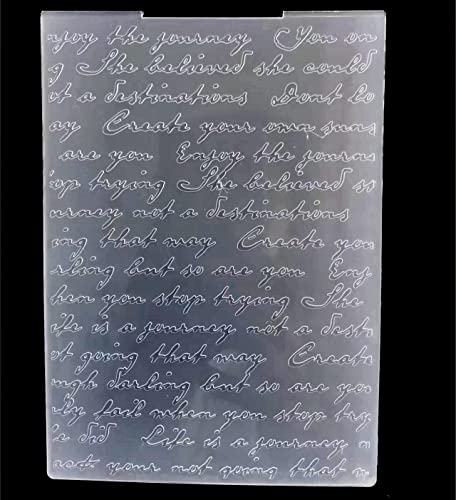 njoy the journey You on
g She believed she could
ot a destinations Dont lo
ay Create your own suns
are you Enjoy the journ
top trying She believed so
urney not a destinations
ing that may Create you
rling but so are you Enj
hen you stop trying She
ife is a journey not a desti
ot going that way Create
ugh darling but so are you
ly fail when you stop try
e did Life is a journey n
back your not going that